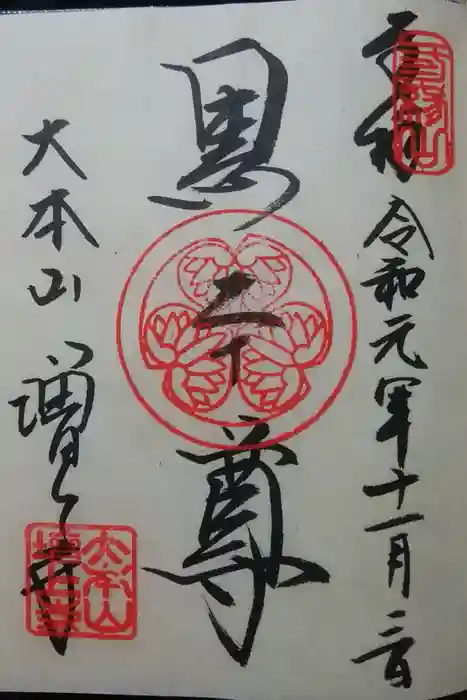 奉拝
三縁山
令和元年十一月二日
黒本尊
大本山 増上寺
大本山
増上寺